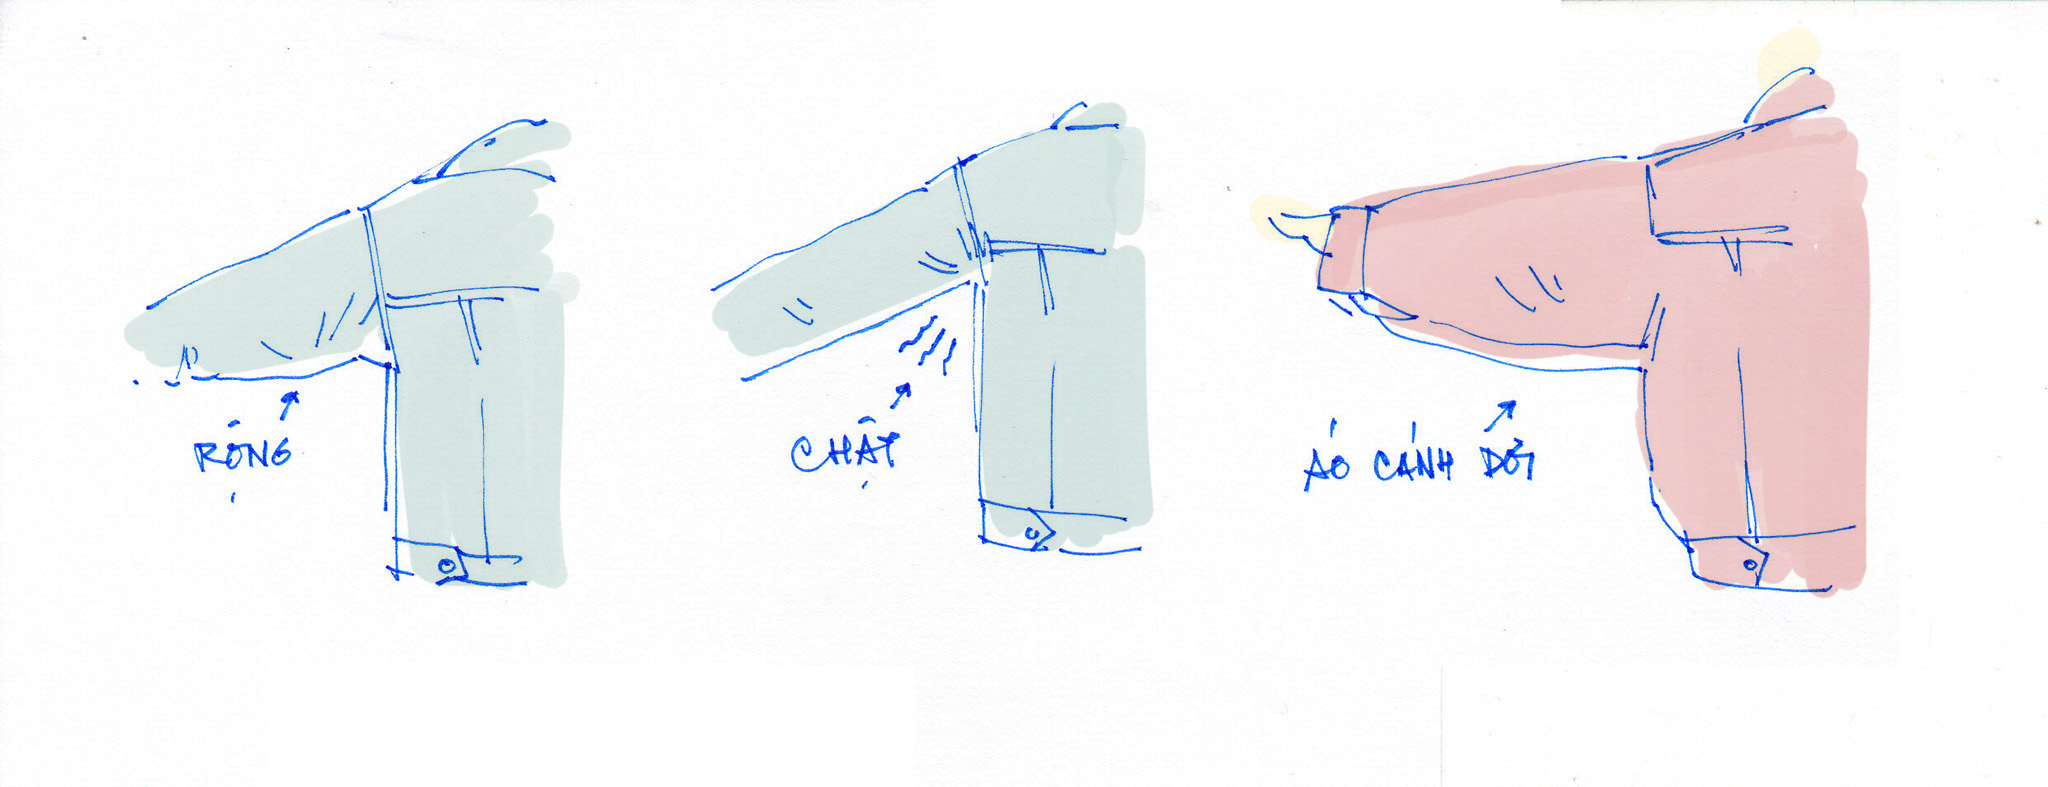 RỘNG
CHẬT
ÁO CÁNH DƠI